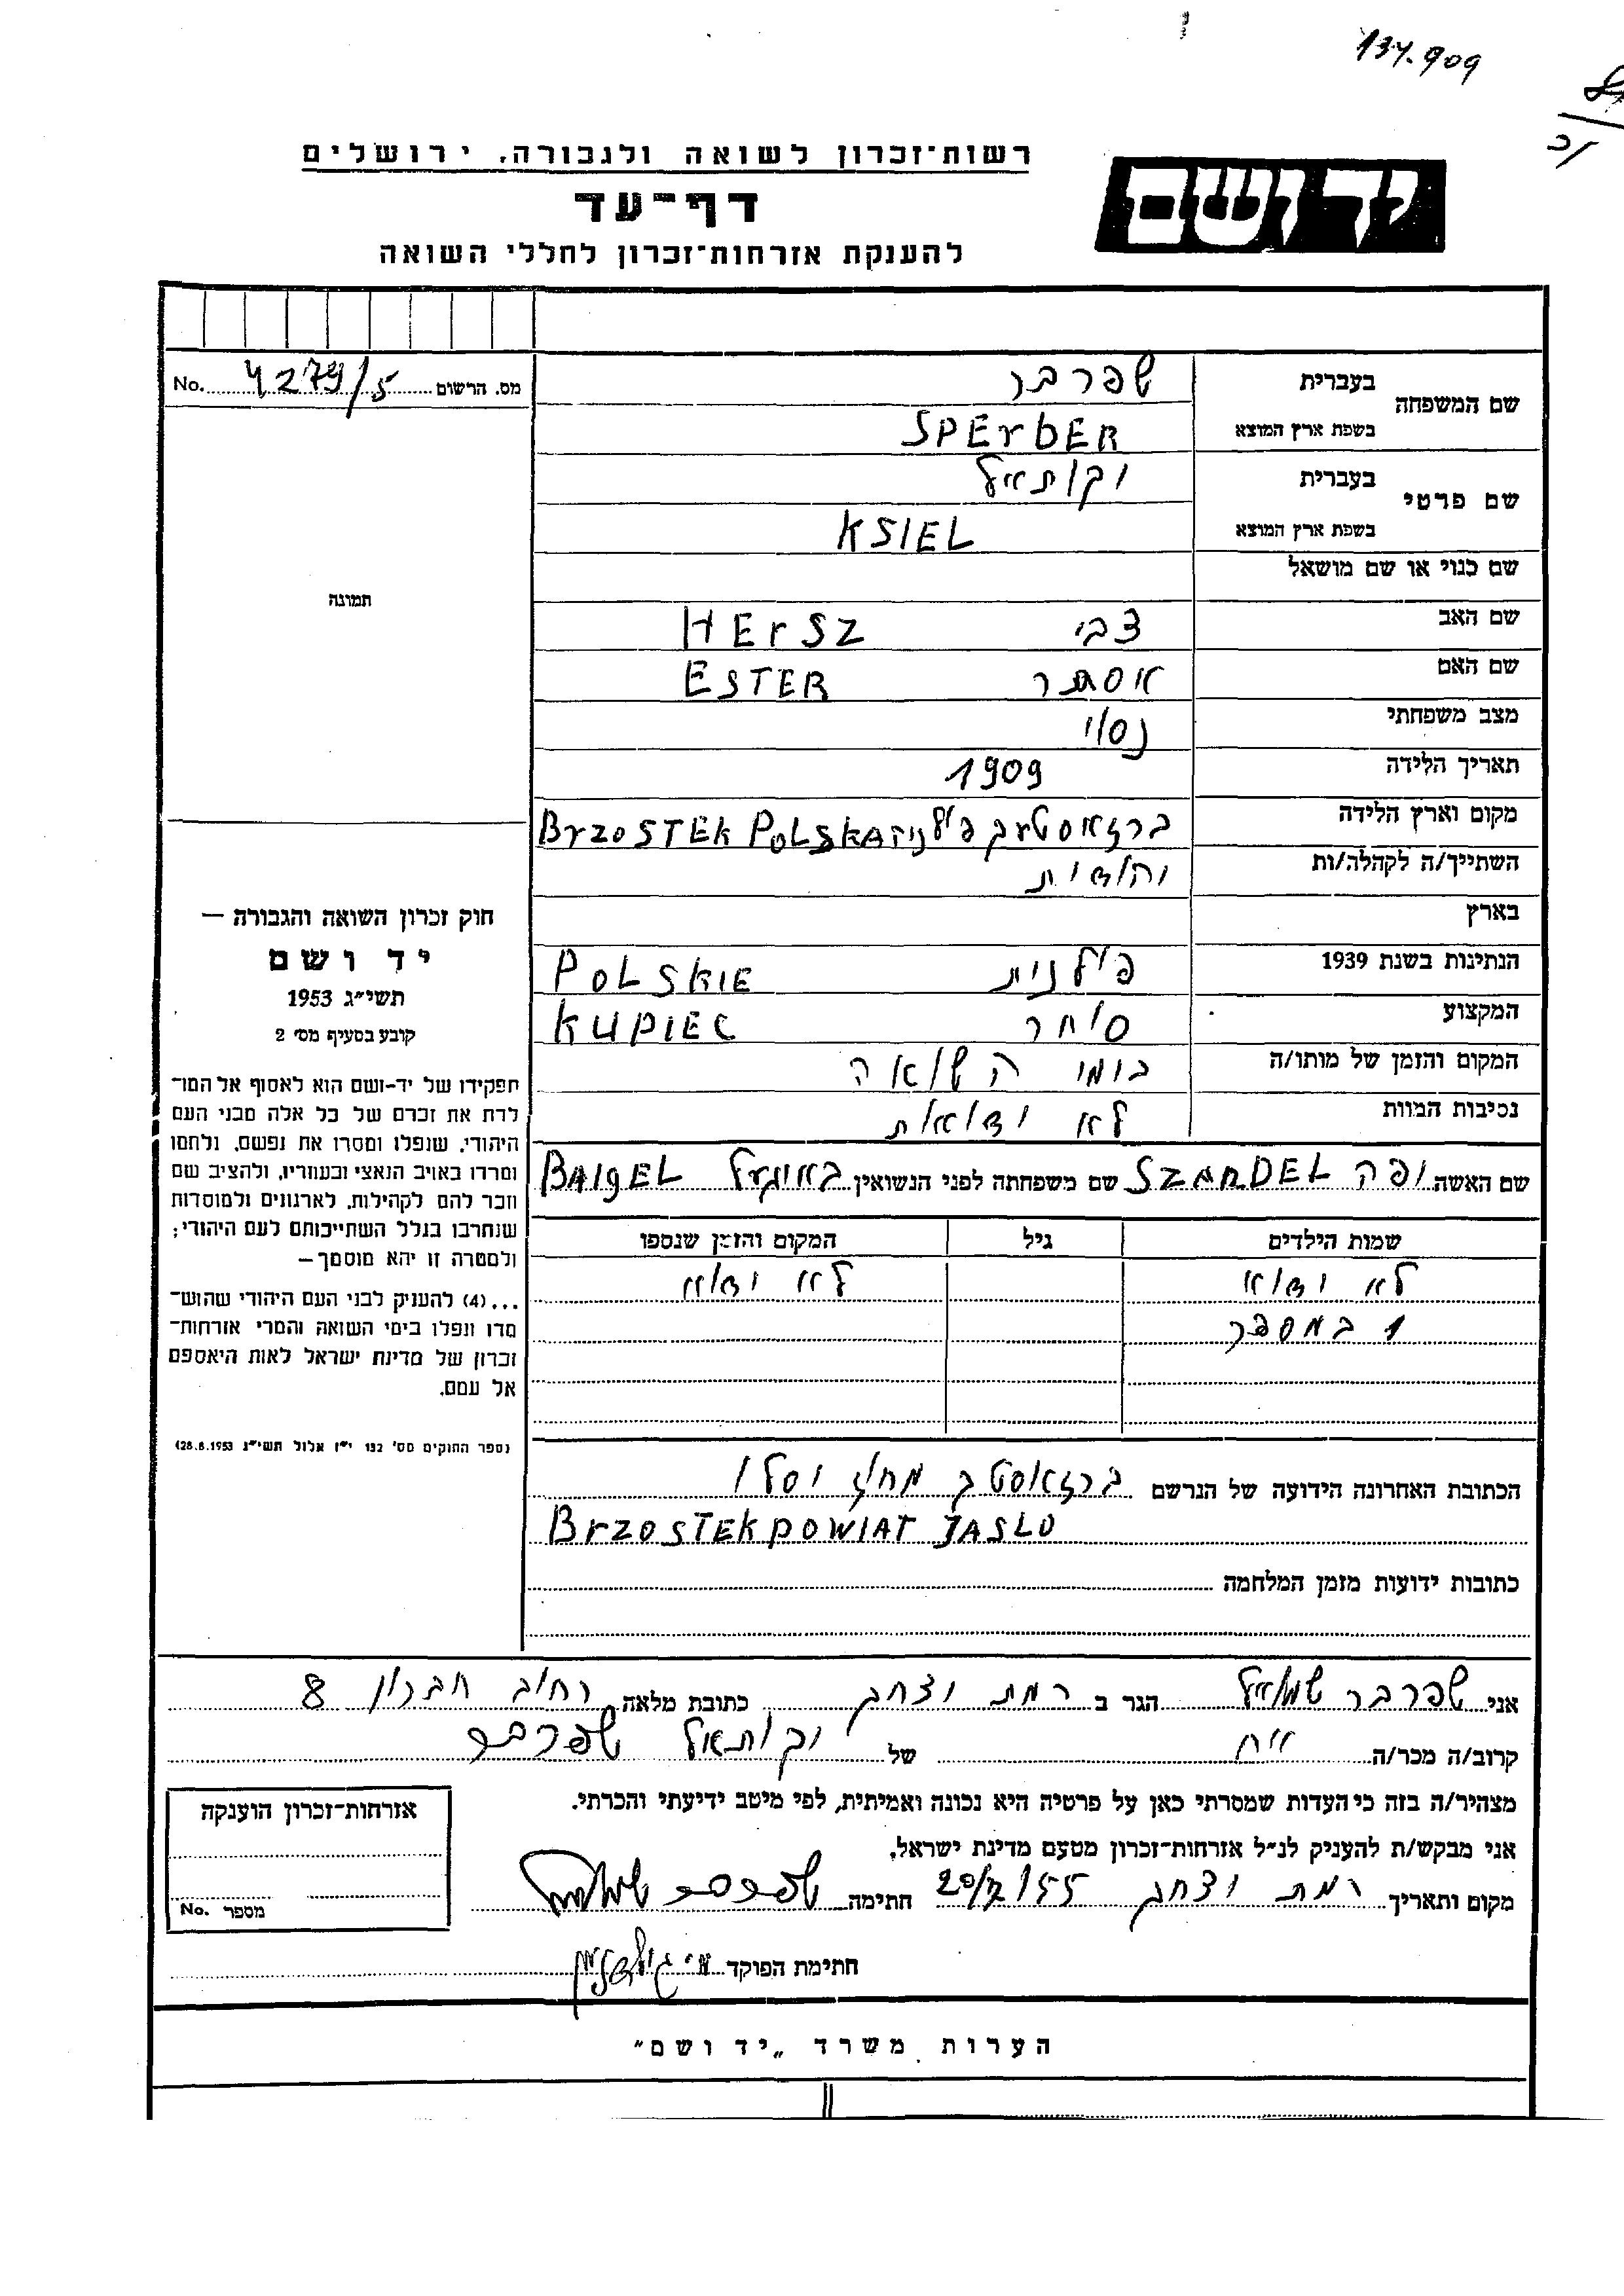 137.909
רשות-זכרון לשואה ולגבורה, ירושלים
יד ושם
דף-עד
להענקת אזרחות-זכרון לחללי השואה
מס. הרשום 4279/5 No.
שם המשפחה
בעברית שפרבר
בשפת ארץ המוצא SPErbER
שם פרטי
בעברית יקותיאל
בשפת ארץ המוצא KSIEL
שם כנוי או שם מושאל
שם האב צבי HErSZ
שם האם אסתר ESTER
מצב משפחתי נסוי
תאריך הלידה 1909
מקום וארץ הלידה ברזאסטעק פולניה BrZOSTEK POLSKA
השתייך/ה לקהלה/ות יהודית
בארץ
הנתינות בשנת 1939 פולנית POLSKIE
המקצוע סוחר KUPIEC
המקום והזמן של מותו/ה בימי השואה
נסיבות המוות לא ידואות
שם האשה יפה SZANDEL שם משפחתה לפני הנשואין באיגעל BAIgEL
שמות הילדים גיל המקום והזמן שנספו
לא ידוא לא ידוא
1 במספר
הכתובת האחרונה הידועה של הנרשם ברזאוסטק מחוז יסלו
BrZOSTEK POWIAT JASLO
כתובות ידועות מזמן המלחמה
תמונה
חוק זכרון השואה והגבורה —
יד ושם
תשי״ג 1953
קובע בסעיף מס׳ 2
תפקידו של יד-ושם הוא לאסוף אל המו־
לדת את זכרם של כל אלה מבני העם
היהודי, שנפלו ומסרו את נפשם, נלחמו
ומרדו באויב הנאצי ובעוזריו, ולהציב שם
וזכר להם לקהילות, לארגונים ולמוסדות
שנחרבו בגלל השתייכותם לעם היהודי;
ולמטרה זו יהא מוסמך —
...(4) להעניק לבני העם היהודי שהוש־
מדו ונפלו בימי השואה והמרי אזרחות־
זכרון של מדינת ישראל לאות היאספם
אל עמם.
(ספר החוקים מס׳ 132 י״ז אלול תשי״ג 28.8.1953)
אני שפרבר שמואל הגר ב רמת יצחק כתובת מלאה רחוב חברון 8
קרוב/ה מכר/ה אח של יקותאל שפרבר
מצהיר/ה בזה כי העדות שמסרתי כאן על פרטיה היא נכונה ואמיתית, לפי מיטב ידיעתי והכרתי.
אני מבקש/ת להעניק לנ״ל אזרחות-זכרון מטעם מדינת ישראל.
מקום ותאריך רמת יצחק 20/7/55 חתימה שפרבר שמואל
חתימת הפוקד
אזרחות-זכרון הוענקה
מספר No.
הערות משרד „יד ושם״